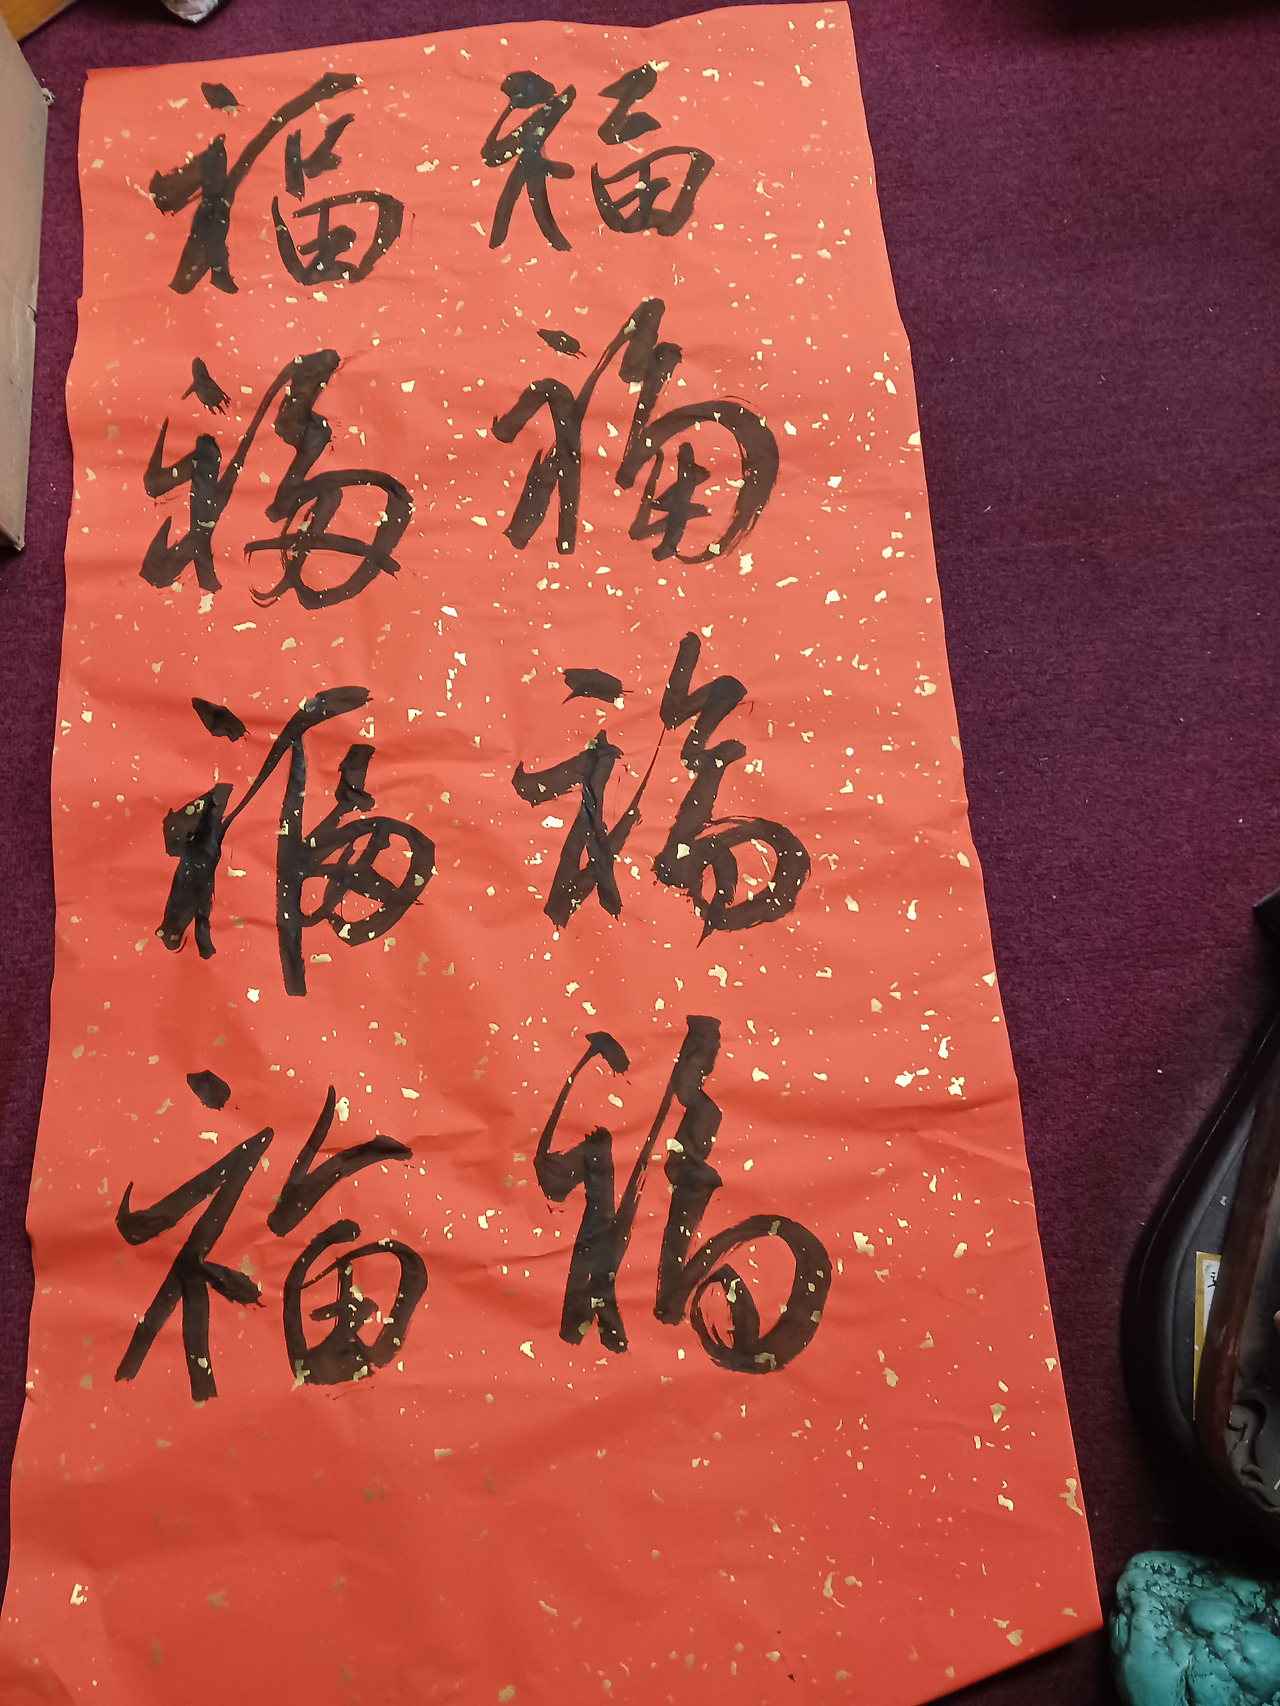 福福
福福
福福
福福